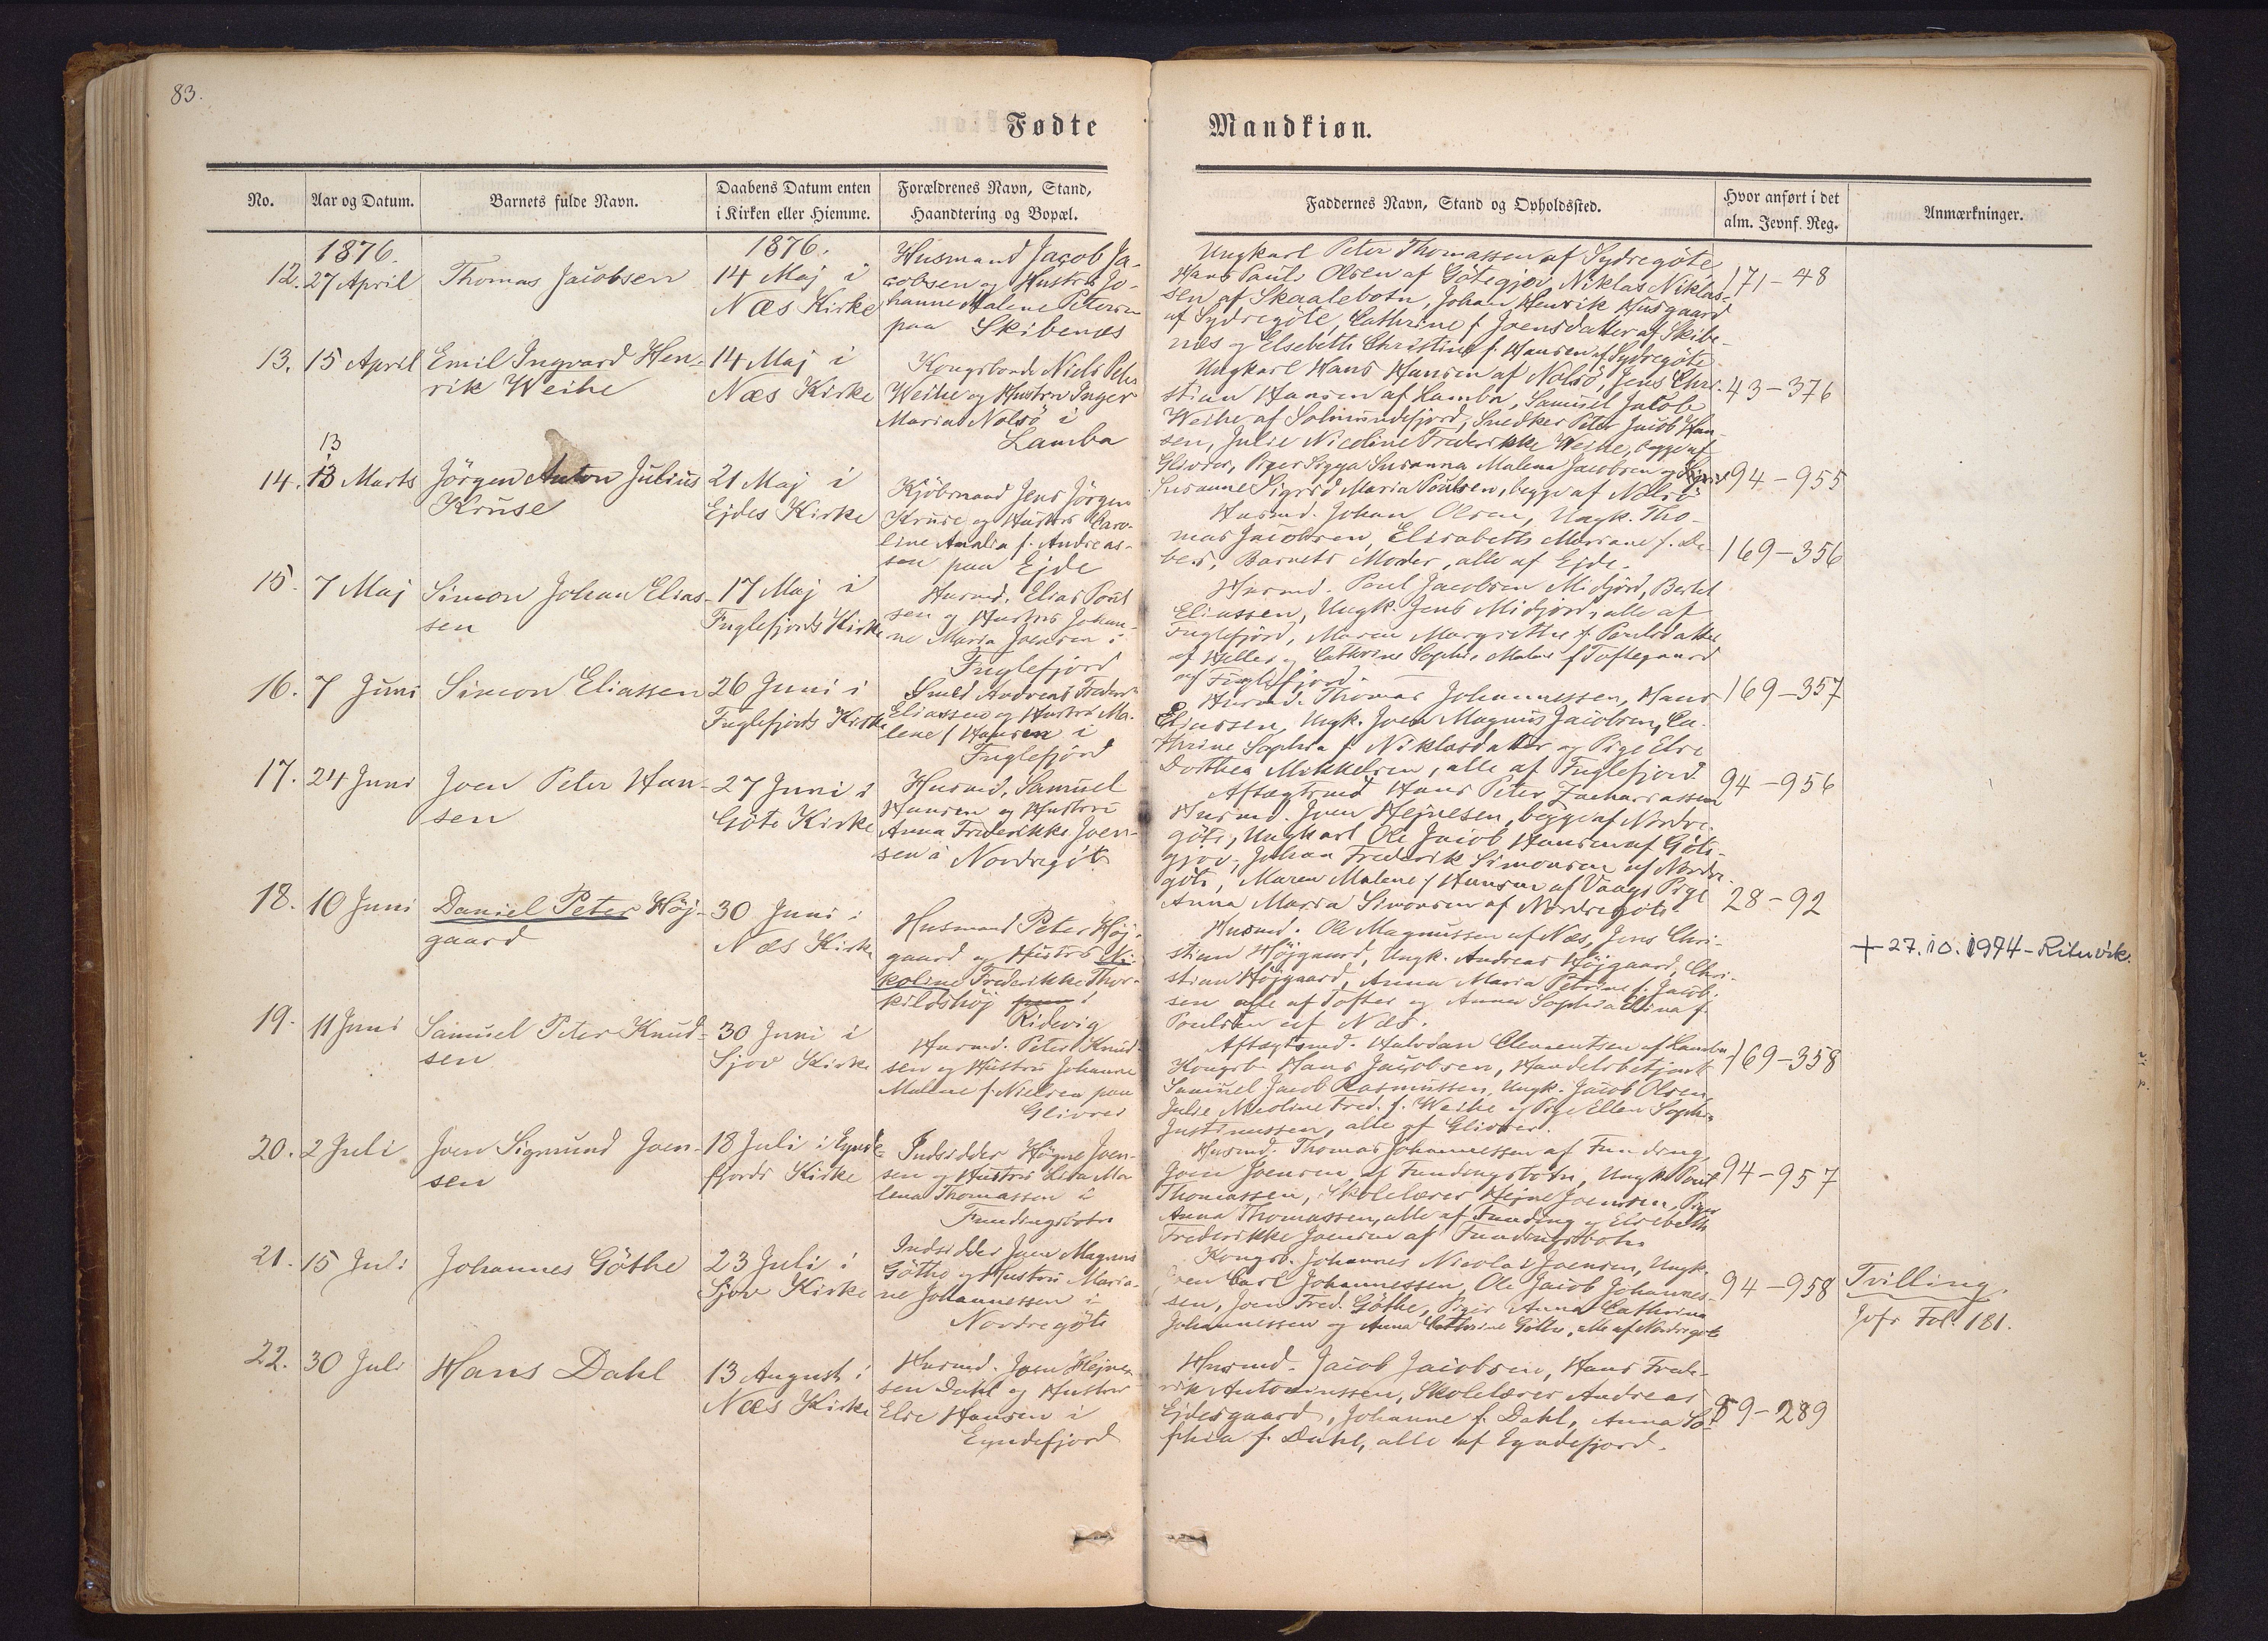 83.
Fødte
Mandkiøn.
No.
Aar og Datum.
Barnets fulde Navn.
Daabens Datum enten
i Kirken eller Hiemme.
Forældrenes Navn, Stand,
Haandtering og Bopæl.
Faddernes Navn, Stand og Opholdssted.
Hvor anført i det
alm. Jevnf. Reg.
Anmærkninger.
1876.
12. 27 April
Thomas Jacobsen
1876.
14 Maj i
Næs Kirke
Husmand Jacob Ja-
cobsen og Hustru Jo-
hanne Malene Petersen
paa Skibenæs
Ungkarl Peter Thomassen af Sydregöte,
Hans Paul Olsen af Götegjov, Niklas Niklas-
sen af Skaalebotn, Johan Henrik Husgaard
af Sydregöte, Cathrine f. Joensdatter af Skibe-
næs og Elsebeth Christine f. Hansen af Sydregöte
171-48
13. 15 April
Emil Ingvard Hen-
rik Weihe
14 Maj i
Næs Kirke
Kongsbonde Niels Peter
Weihe og Hustru Inger
Maria Nolsö i
Lamba
Ungkarl Hans Hansen af Nolsö, Jens Chri-
stian Hansen af Lamba, Samuel Jacob
Weihe af Solmundefjord, Snedker Peter Jacob Han-
sen, Julie Nicoline Frederikke Weihe, begge af
Glivrer, Piger Sigga Susanna Malena Jacobsen og
Susanne Sigrid Maria Poulsen, begge af Nolsö
43-376
13
14. 13 Marts
Jörgen Anton Julius
Kruse
21 Maj i
Ejdes Kirke
Kjöbmand Jens Jörgen
Kruse og Hustru Caro-
line Amalia f. Andreas-
sen paa Ejde
Husmd. Johan Olsen, Ungk. Tho-
mas Jacobsen, Elisabeth Mariane f. De-
bes, Barnets Moder, alle af Ejde.
94-955
15. 7 Maj
Simon Johan Elias-
sen
17 Maj i
Fuglefjords Kirke
Husmd. Elias Poul
sen og Hustru Johan-
ne Maria Joensen i
Fuglefjord
Husmd. Poul Jacobsen Midjord, Bertel
Eliassen, Ungk. Jens Midjord, alle af
Fuglefjord, Maren Margrethe f. Poulsdatter
af Helle og Cathrine Sophie Malene f Toftegaard
af Fuglefjord.
169-356
16. 7 Juni
Simon Eliassen
26 Juni i
Fuglefjords Kirke
Smed Andreas Frederik
Eliassen og Hustru Ma-
lene f Hansen i
Fuglefjord
Husmd. Thomas Johannessen, Hans
Eliassen, Ungk. Joen Magnus Jacobsen, Ca-
thrine Sophia f. Niklasdatter og Pige Else
Dorthea Mikkelsen, alle af Fuglefjord
169-357
17. 24 Juni
Joen Peter Han-
sen
27 Juni i
Göte Kirke
Husmd. Samuel
Hansen og Hustru
Anna Frederikke Joen-
sen i Nordregöte
Aftægtsmd Hans Peter Zachariassen
Husmd. Joen Hejnesen, begge af Nordre-
göte, Ungkarl Ole Jacob Hansen af Göte-
gjov, Johan Frederik Simonsen af Nordre-
göte, Maren Malene f Hansen af Vaag, Pige
Anna Maria Simonsen af Nordregöte
94-956
18. 10 Juni
Daniel Peter Höj-
gaard
30 Juni i
Næs Kirke
Husmand Peter Höj-
gaard og Hustru Ni-
koline Frederikke Thor-
kildshöj paa i
Ridevig
Husmd. Ole Magnussen af Næs, Jens Chri-
stian Höjgaard, Ungk. Andreas Höjgaard, Chri-
stian Höjgaard, Anna Maria Petrine f. Jacob-
sen alle af Tofter og Anna Sophia Elina f
Poulsen af Næs.
28-92
+ 27.10.1974 - Rituvík.
19. 11 Juni
Samuel Peter Knud-
sen
30 Juni i
Sjov Kirke
Husmd. Peter Knud-
sen og Hustru Johanne
Malene f. Nielsen paa
Glivrer
Aftægtsmd. Halvdan Clementsen af Lamba
Kongsb. Hans Jacobsen, Handelsbetjent
Samuel Jacob Rasmussen, Ungk. Jacob Olsen,
Julie Nicoline Fred. f. Weihe og Pige Ellen Sophie
Justinussen, alle af Glivrer.
169-358
20. 2 Juli
Joen Sigmund Joen-
sen
18 Juli i Eynde-
fjords Kirke
Indsidder Högne Joen-
sen og Hustru Lisa Ma-
lena Thomassen i
Fundingsbotn
Husmd. Thomas Johannessen af Funding,
Joen Joensen af Fundingsbotn, Ungk. Poul
Thomassen, Skolelærer Hejne Joensen, Pige
Anna Thomassen, alle af Funding og Elsebeth
Frederikke Joensen af Fundingsbotn
94-957
21. 15 Juli
Johannes Göthe
23 Juli i
Sjov Kirke
Indsidder Joen Magnus
Göthe og Hustru Maria-
ne Johannessen i
Nordregöte
Kongsb. Johannes Nicolai Joensen, Ungk.
Joen Carl Johannessen, Ole Jacob Johannes-
sen, Joen Fred. Göthe, Piger Anna Cathrina
Johannessen og Anna Cathrine Göthe, alle af Nordregöte
94-958
Tvilling.
Jvfr Fol. 181.
22. 30 Juli
Hans Dahl
13 August i
Næs Kirke
Husmd. Joen Hejne-
sen Dahl og Hustru
Else Hansen i
Eyndefjord
Husmd. Jacob Jacobsen, Hans Frede-
rik Antoniussen, Skolelærer Andreas
Ejdesgaard, Johanne f. Dahl, Anna So-
phia f. Dahl, alle af Eyndefjord.
89-289